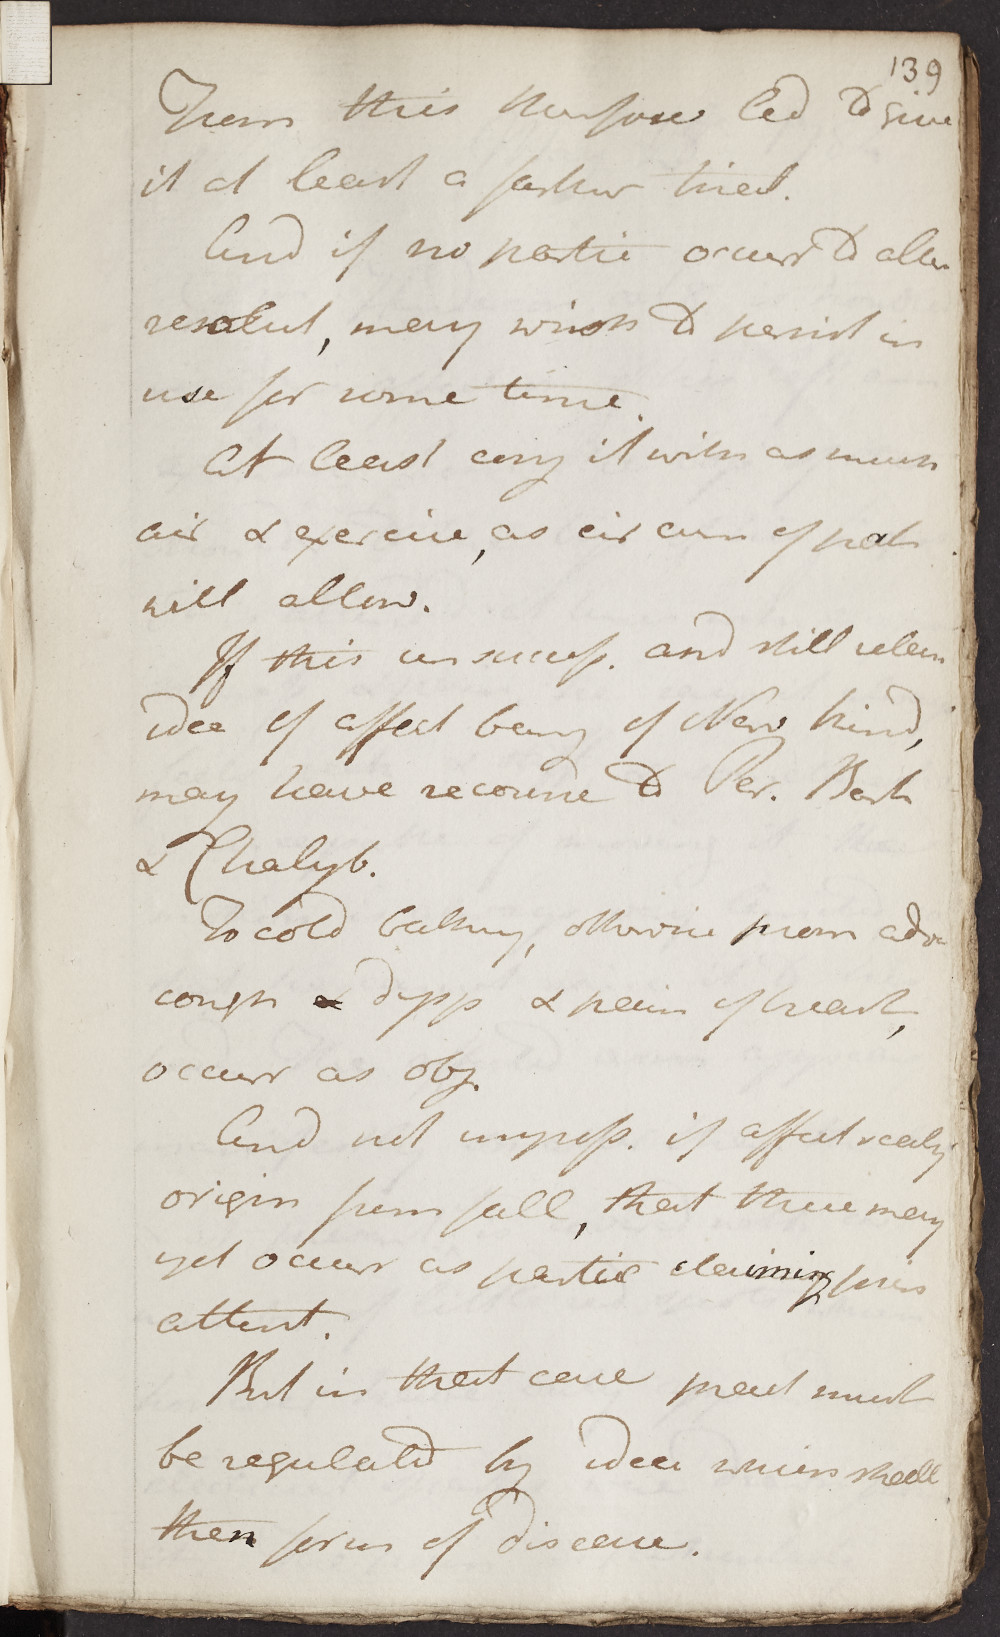 139
From this therefore led to give
it at least a farther trial.
And if no partic occurr to alter
resolut, may wish to persist in
use for some time.
At least conj it with as much
air & exercise, as circum of pat
will allow.
If this unsuccess. and still retain
idea of affect being of Nerv kind,
may have recourse to Per. Bark
& Chalyb.
To cold bathing, otherwise prom adv
cough & dysp & pain of breast,
occurr as obj.
And not imposs. if affect realy
origin from fall, that there may
yet occurr as partic claiming
attent.
But in that case pract must
be regulated by idea which shall
then form of disease.